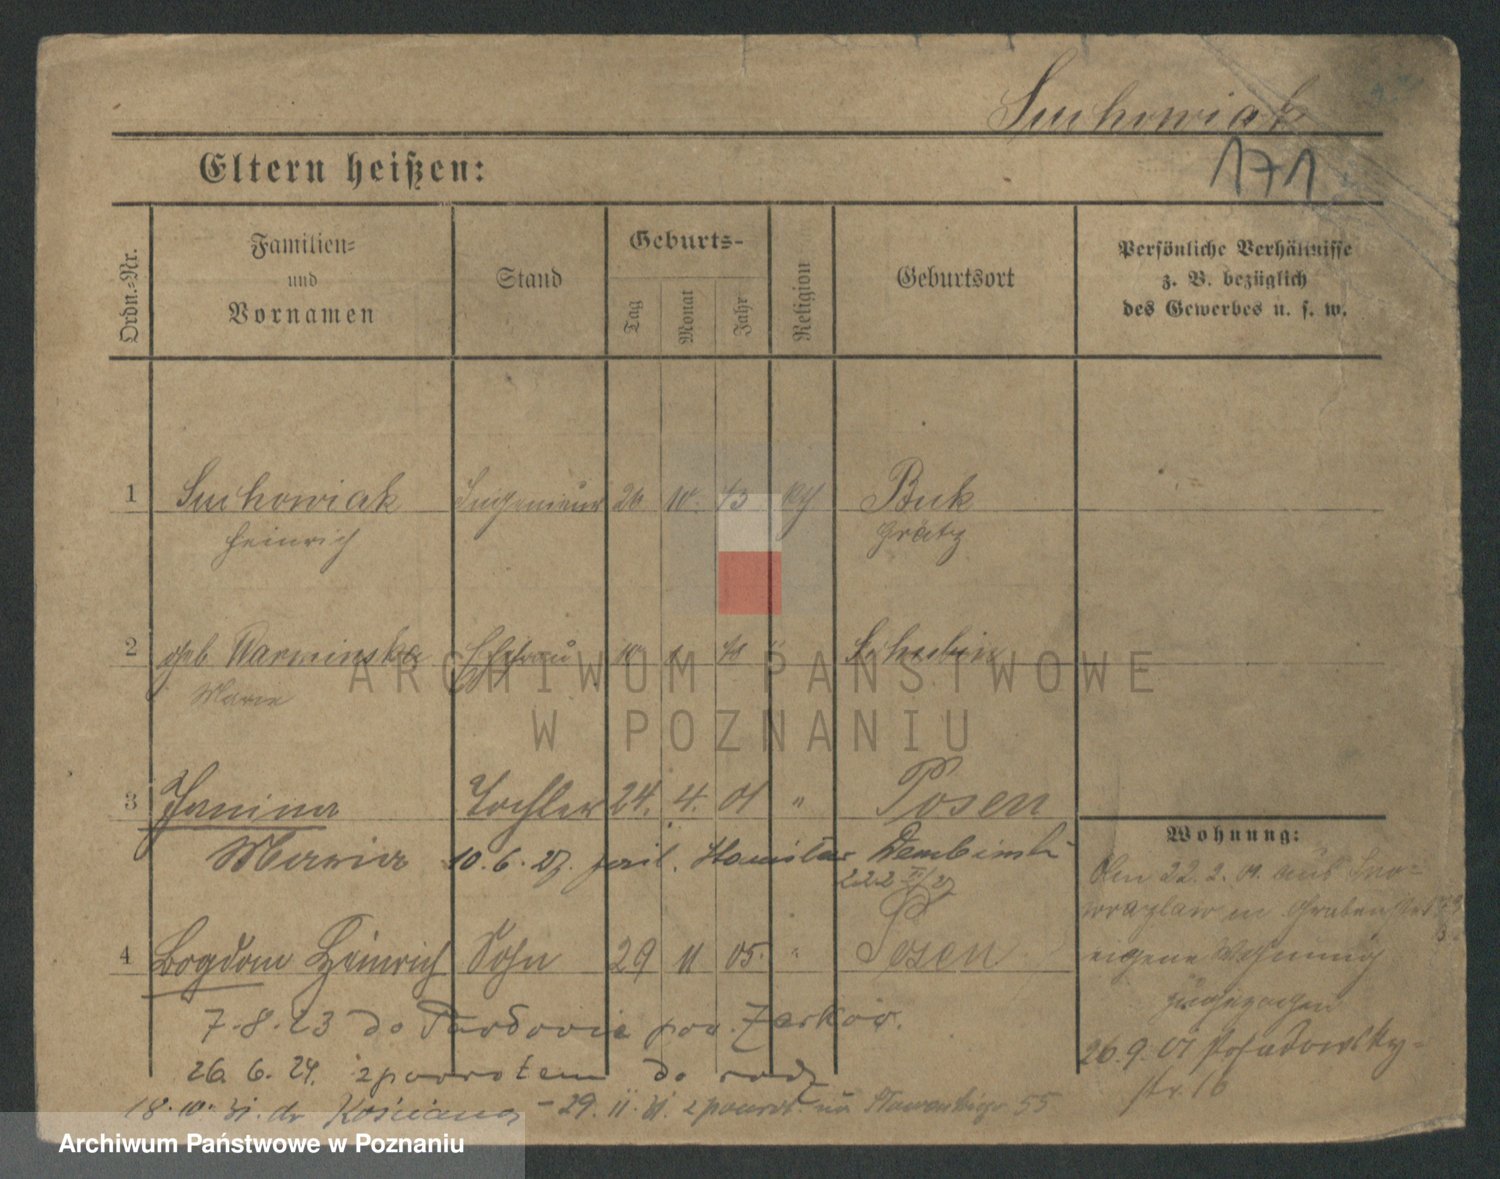 Suchowiak
171
Eltern heißen:
Ordn.-Nr.
Familien-
und
Vornamen
Stand
Geburts-
Tag
Monat
Jahr
Religion
Geburtsort
Persönliche Verhältnisse
z. B. bezüglich
des Gewerbes u. s. w.
1 Suchowiak Ingenieur 26 10. 73 Buk
Heinrich Grätz
2 geb. Warminska Ehefrau 10 Schubin
Marie
3 Janina Tochter 24. 4. 01 " Posen
Maria 10. 6. 27. Stanislaw Dembinski
4 Bogdan Heinrich Sohn 29 11 05. " Posen
7.8.23 do pow.
26. 6. 24. z powrotem do
18.10.31. do Kościana - 29.11.31. z powrot. na 55
Wohnung:
22. 2. 01. aus Ino-
wrazlaw in Grabenstr.
eigene Wohnung
zugezogen
26.9.01 Posadowsky-
str. 16
ARCHIWUM PAŃSTWOWE
W POZNANIU
Archiwum Państwowe w Poznaniu